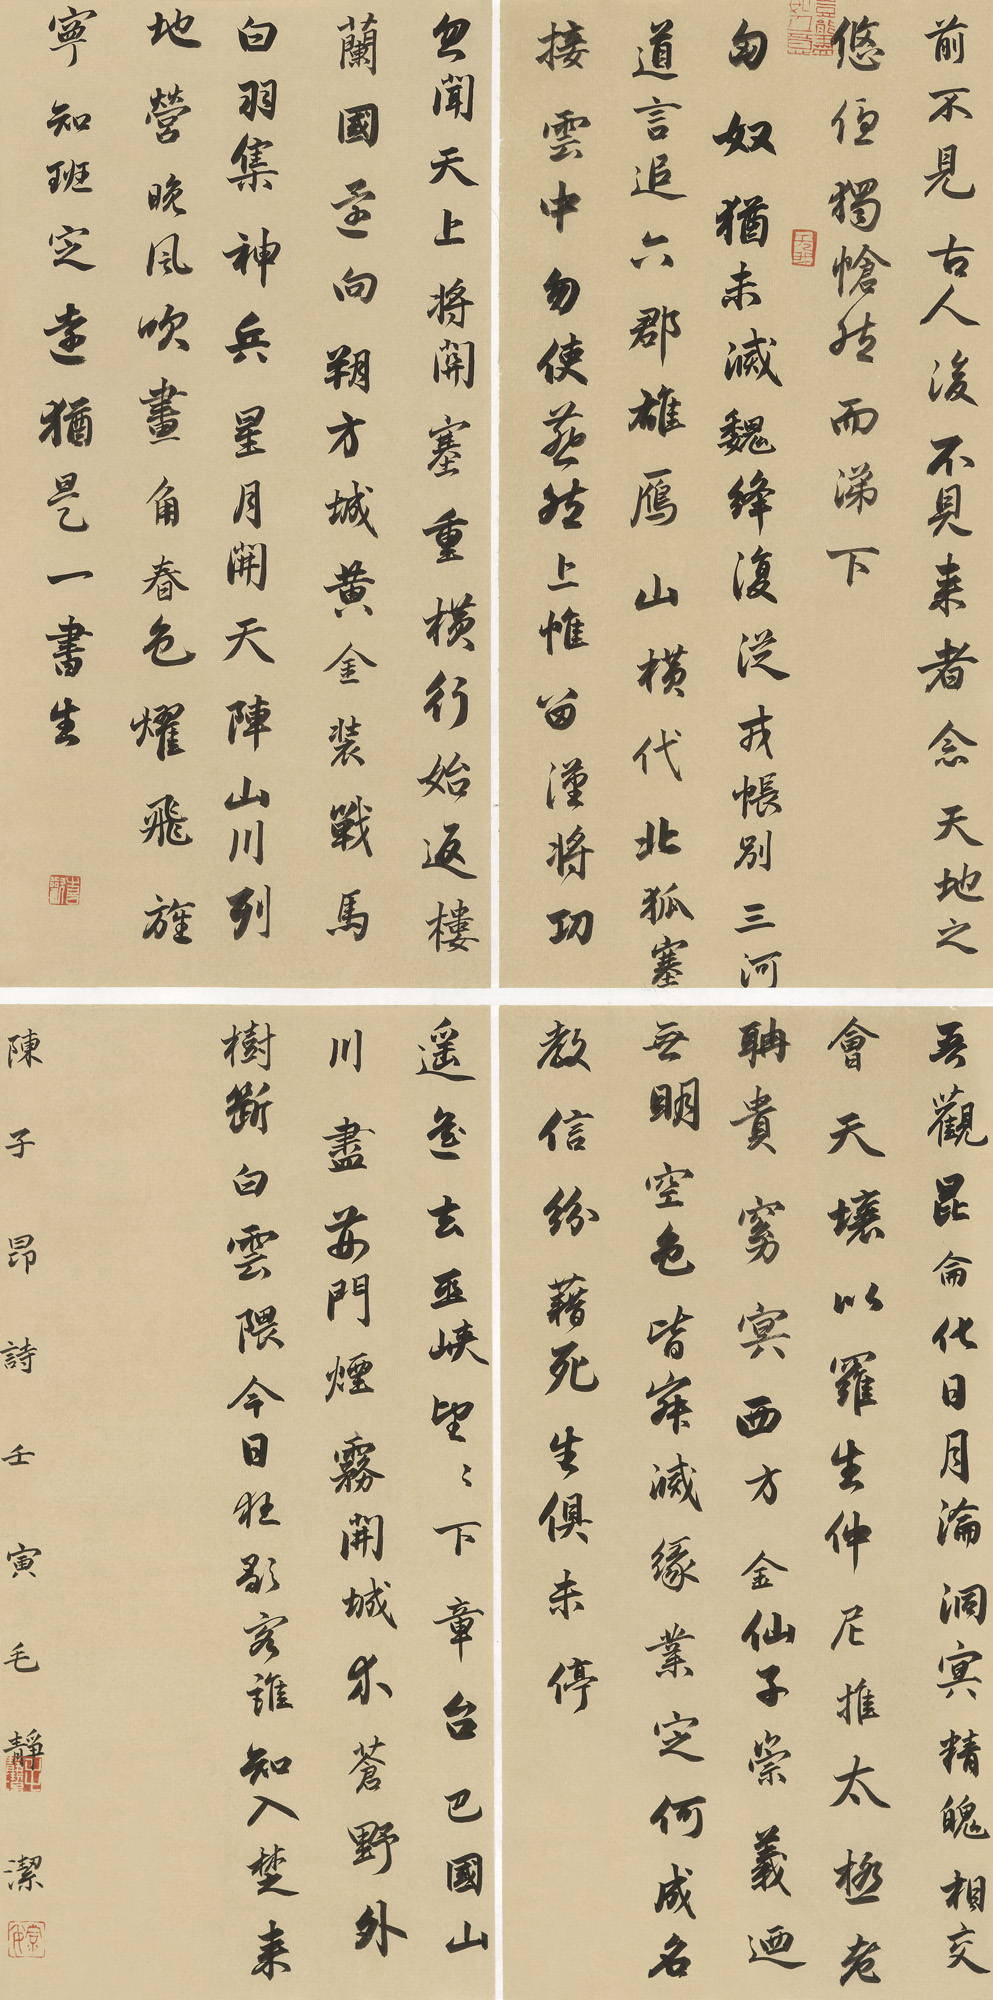 前不見古人後不見来者念天地之
悠悠獨愴然而涕下
匈奴猶未滅魏絳復從戎帳別三河
道言追六郡雄雁山橫代北狐塞
接雲中勿使燕然上惟留漢將功
忽聞天上將開塞重橫行始返樓
蘭國還向朔方城黄金装戰馬
白羽集神兵星月開天陣山川列
地營晚風吹畫角春色耀飛旌
寧知班定遠猶是一書生
吾觀昆侖化日月淪洞冥精魄相交
會天壤以羅生仲尼推太極老
聃貴窈冥西方金仙子崇義迺
無明空色皆寂滅緣業定何成名
教信紛藉死生俱未停
遥遥去巫峡望々下章台巴國山
川盡荊門煙霧開城分蒼野外
樹斷白雲隈今日狂歌客誰知入楚来
陳子昂詩壬寅毛靜潔